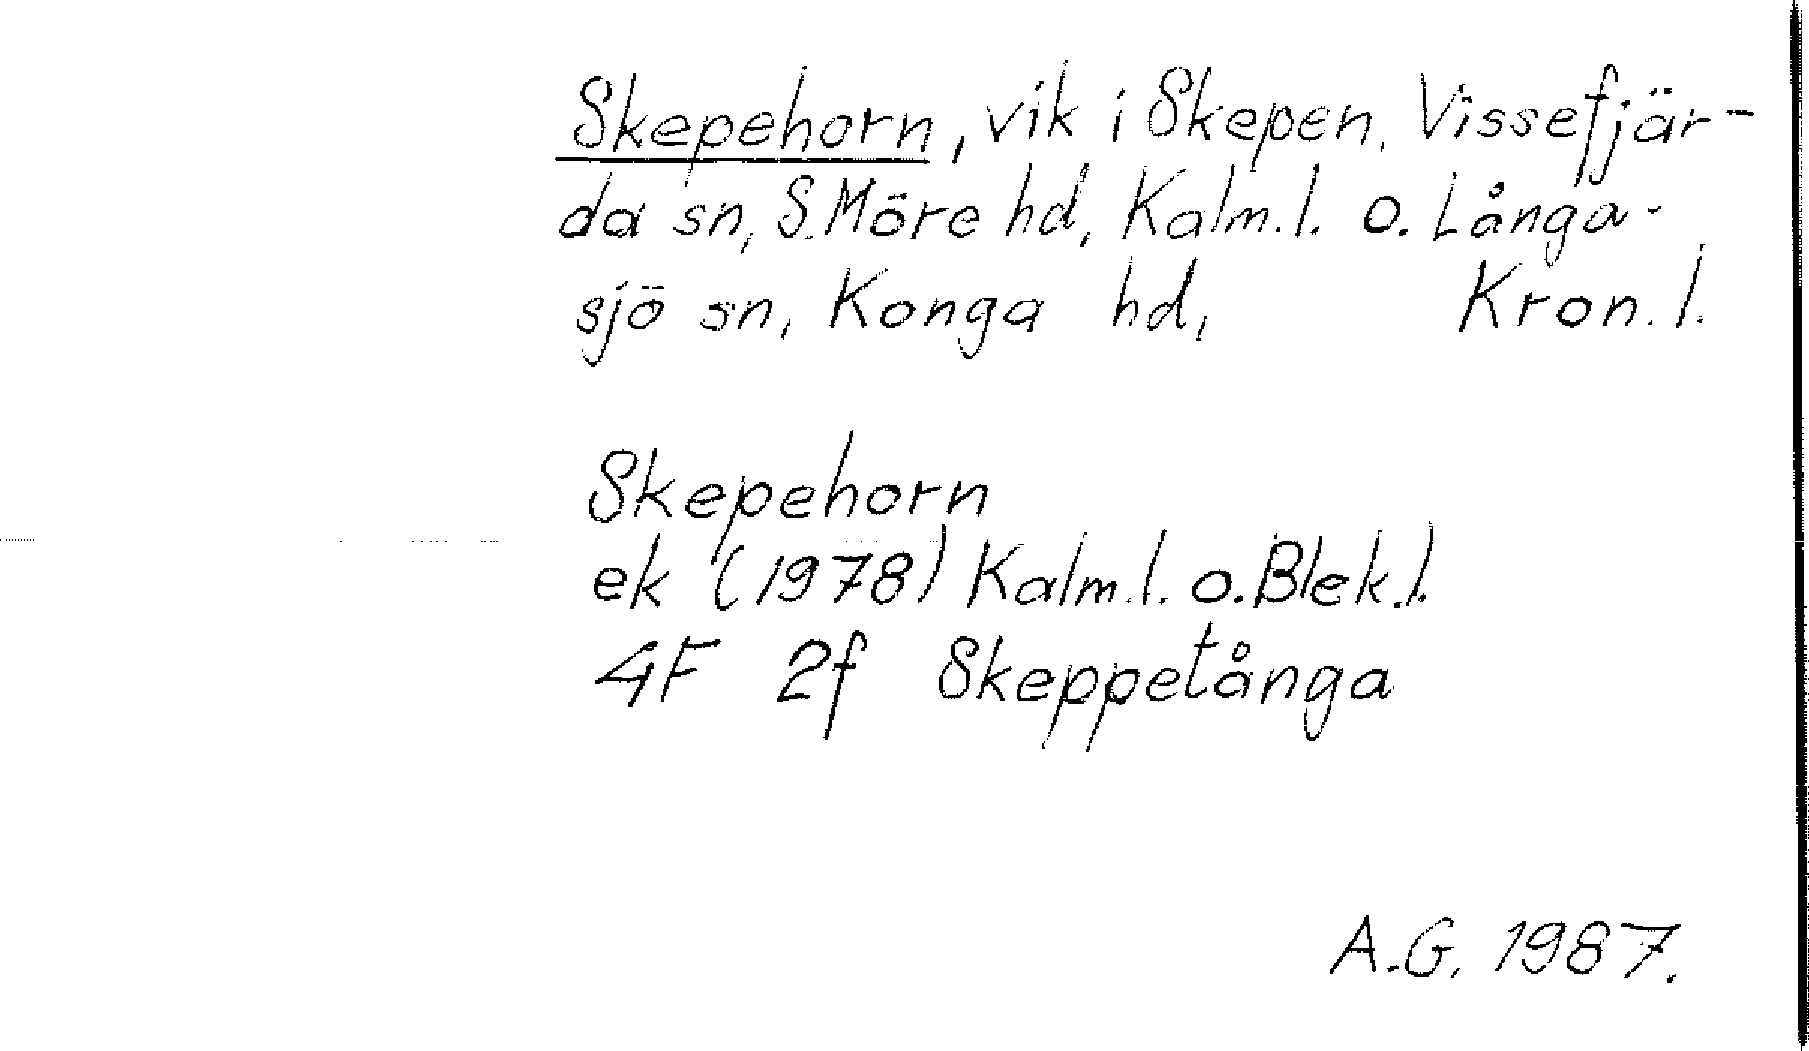 Skepehorn, vik i Skepen, Vissefjär-
da sn, S. Möre hd, Kalm.l. o. Långa-
sjö sn, Konga hd, Kron.l.
Skepehorn
ek (1978) Kalm.l. o. Blek.l.
4F 2f Skeppetånga
A.G. 1987.